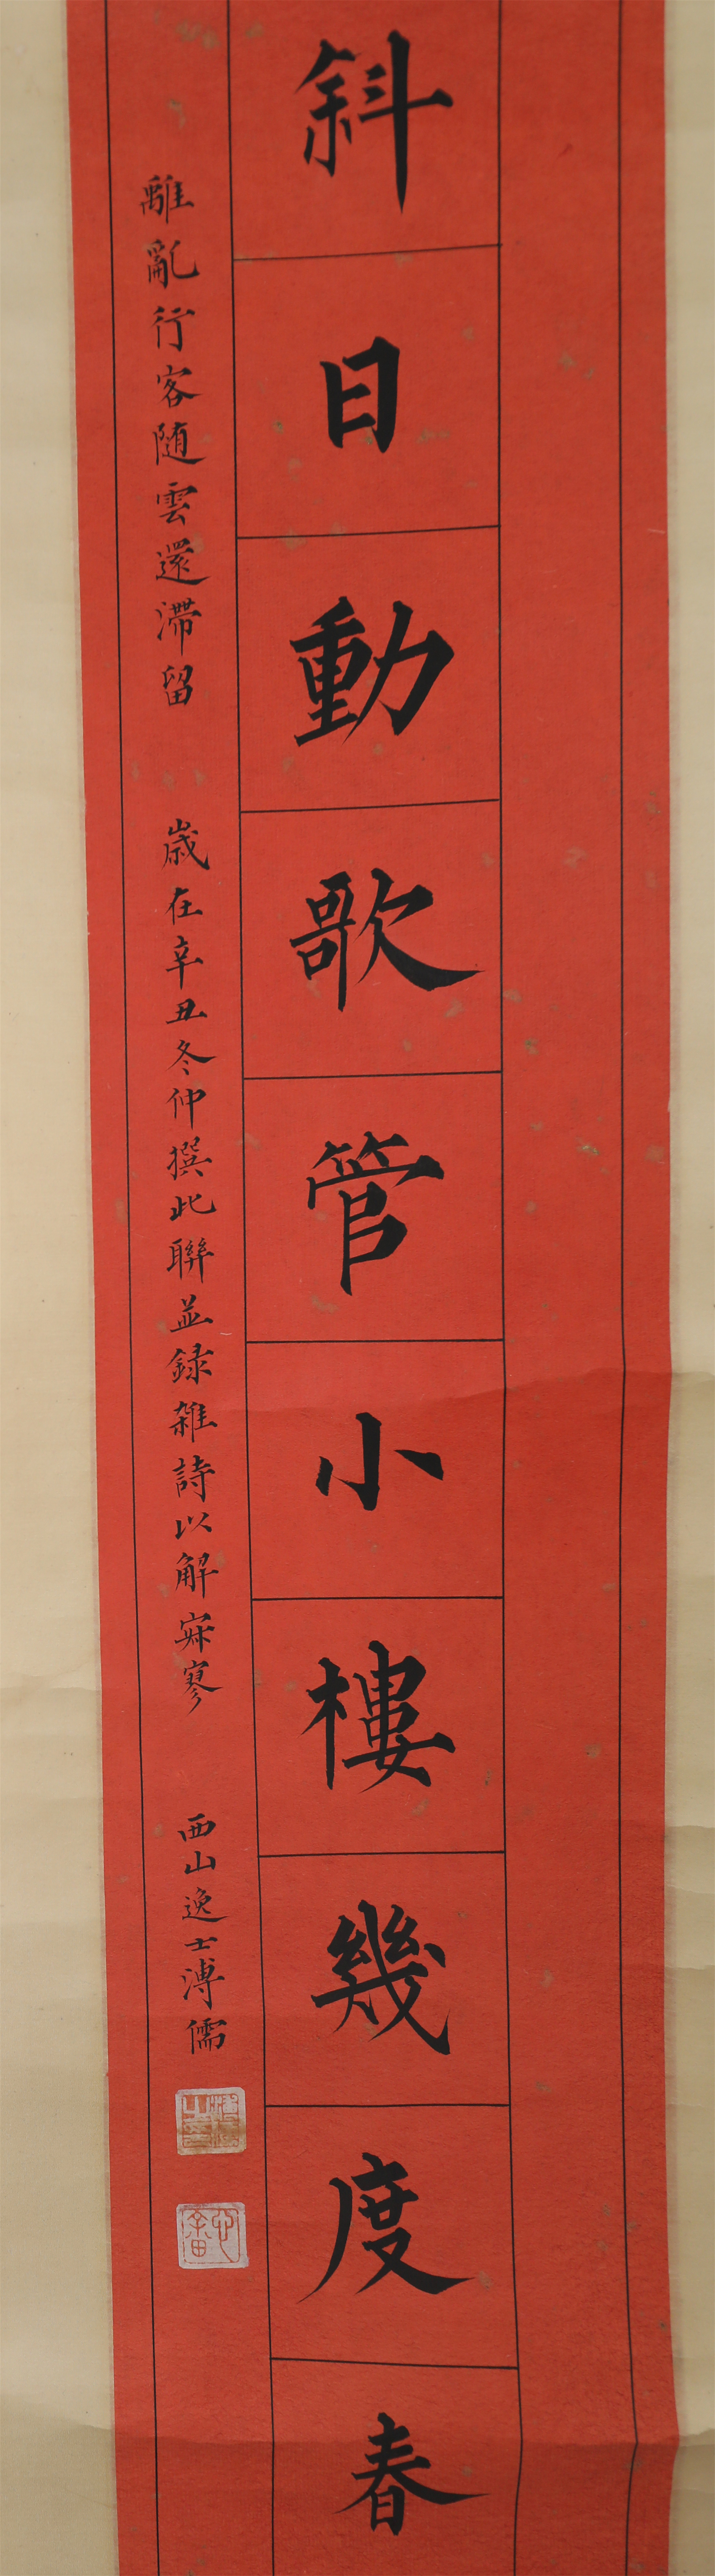 斜日動歌管小樓幾度春
離亂行客随雲還滯留
歲在辛丑冬仲撰此聯並録雜詩以解寂寥
西山逸士溥儒